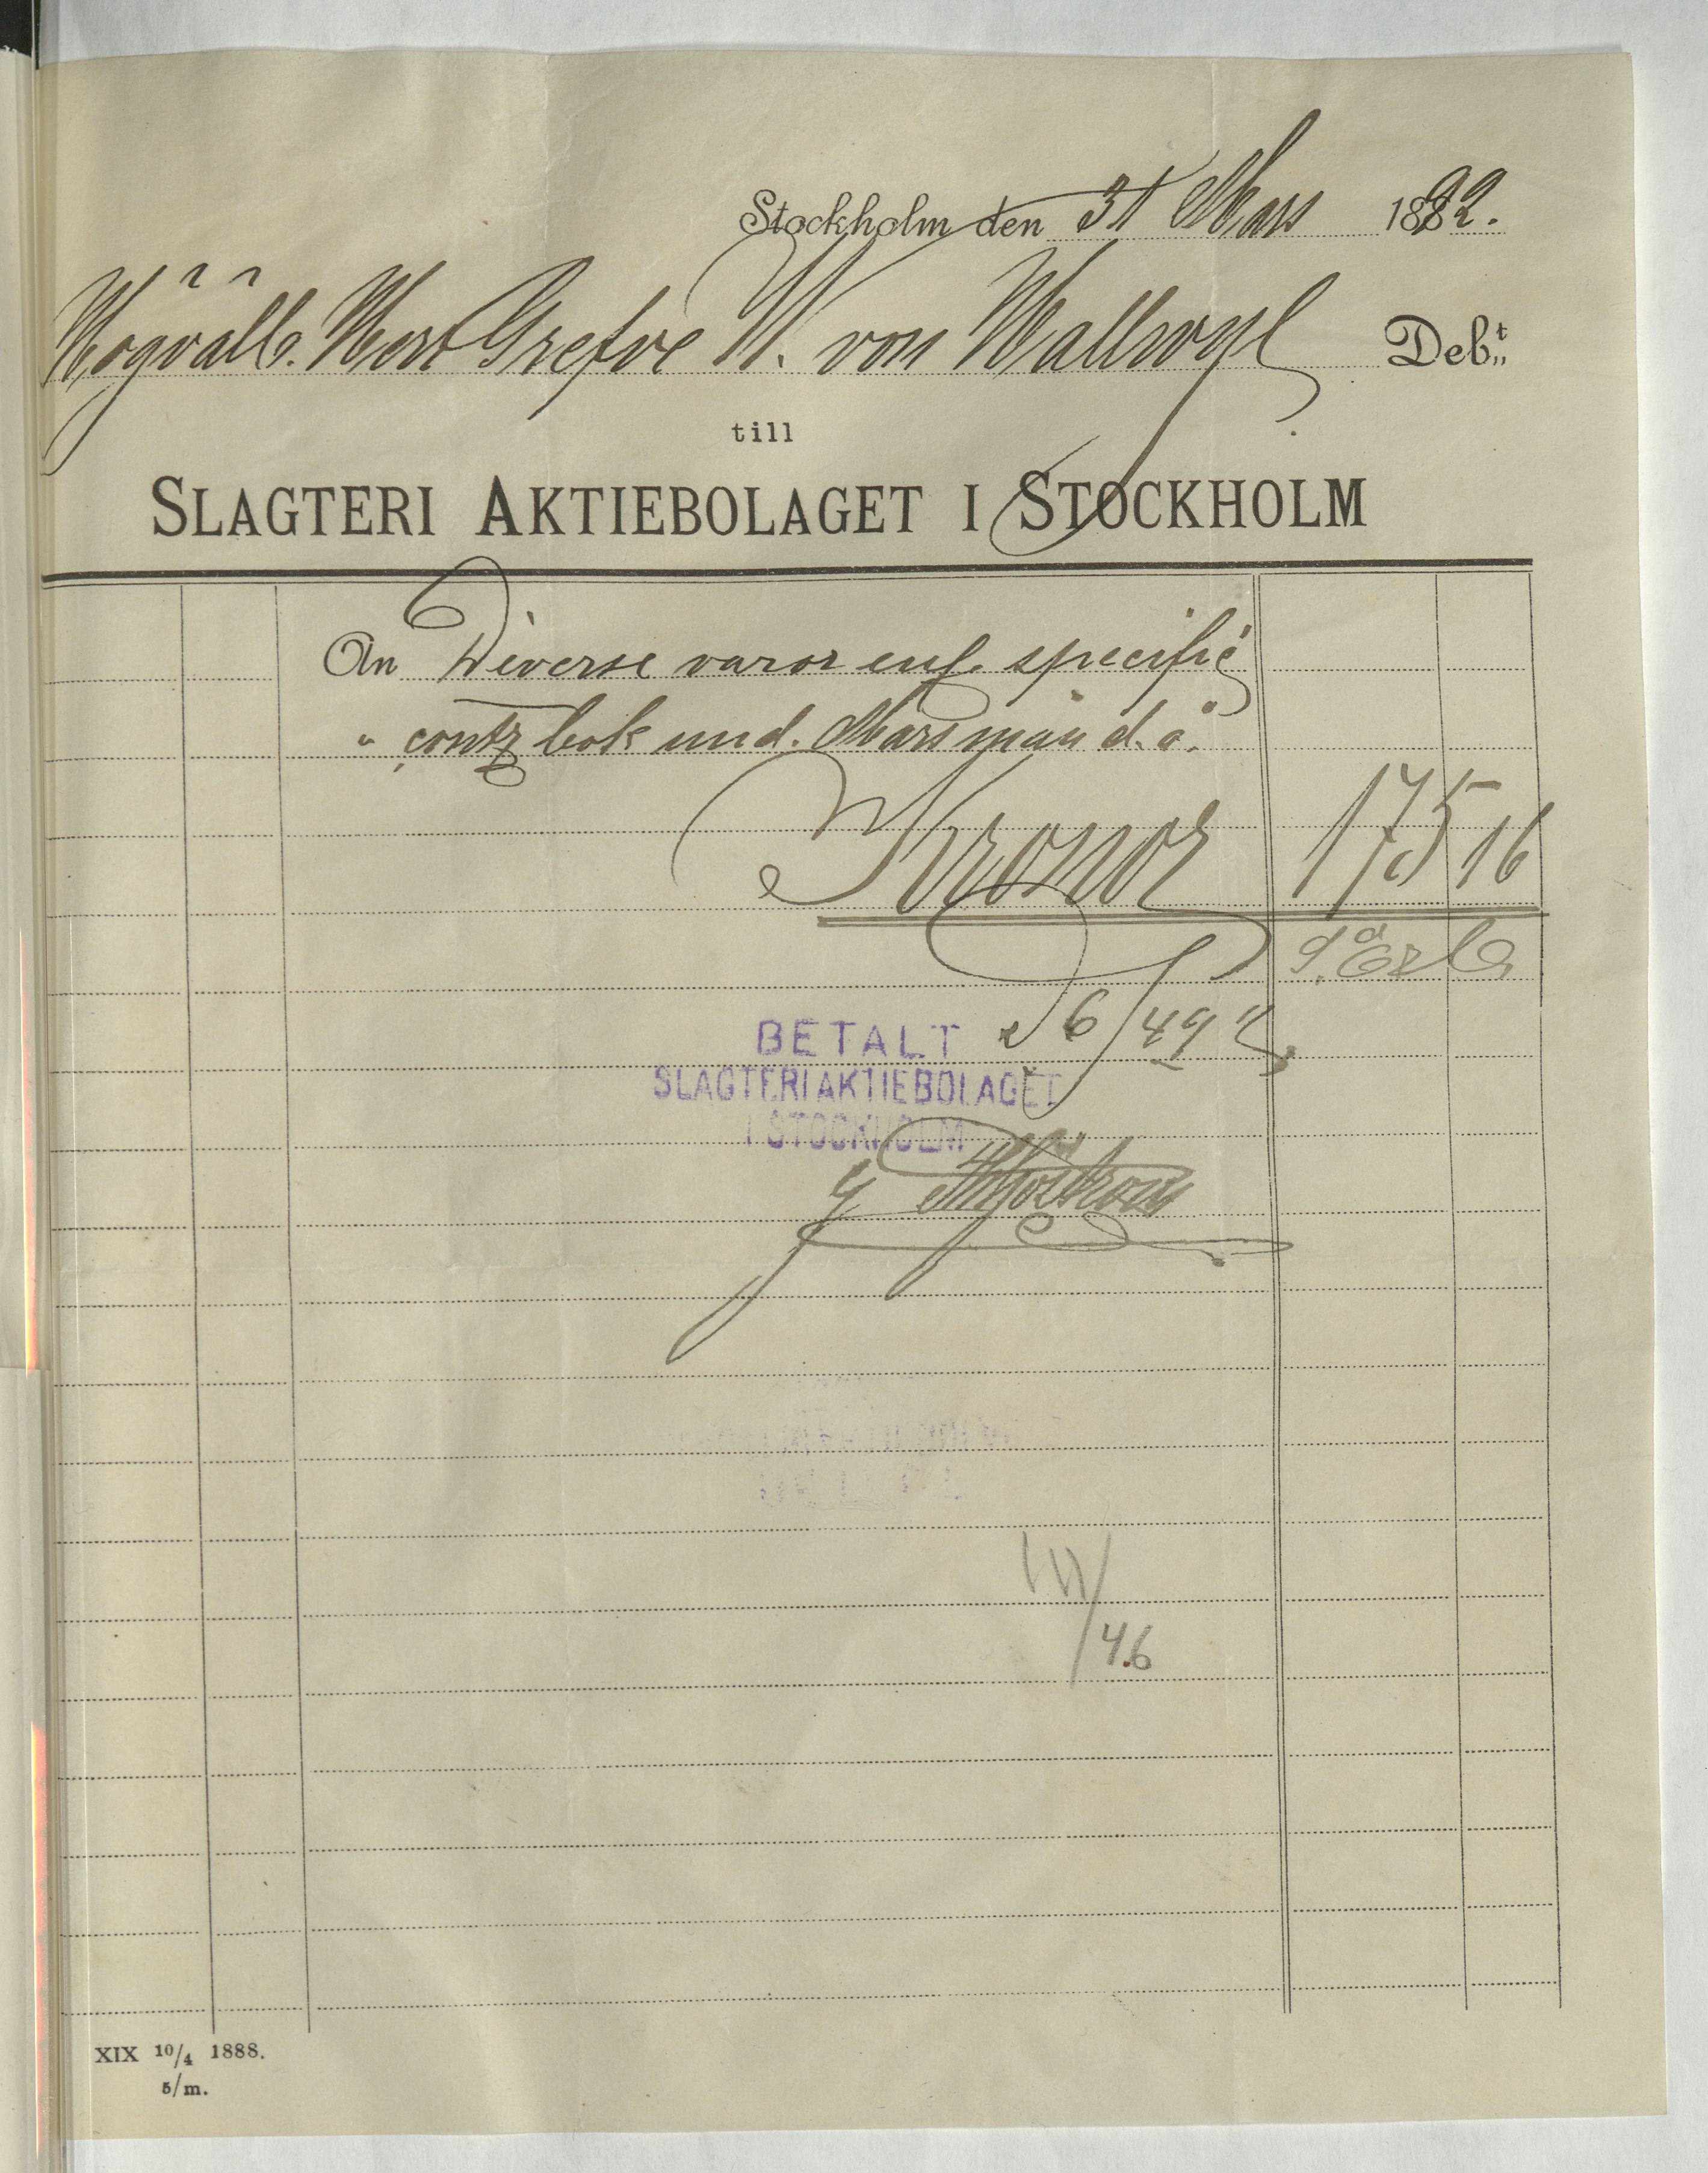 Stockholm den 31 Mars 1892.
Högvälb. Herr Grefve W. von Hallwyl Debt.
till
SLAGTERI AKTIEBOLAGET I STOCKHOLM
An Diverse varor enl. specific
" contra bok und. Mars månd. à.
Kronor 175 16
BETALT 6/4 92
SLAGTERIAKTIEBOLAGET
I STOCKHOLM
46
XIX 10/4 1888.
5/m.